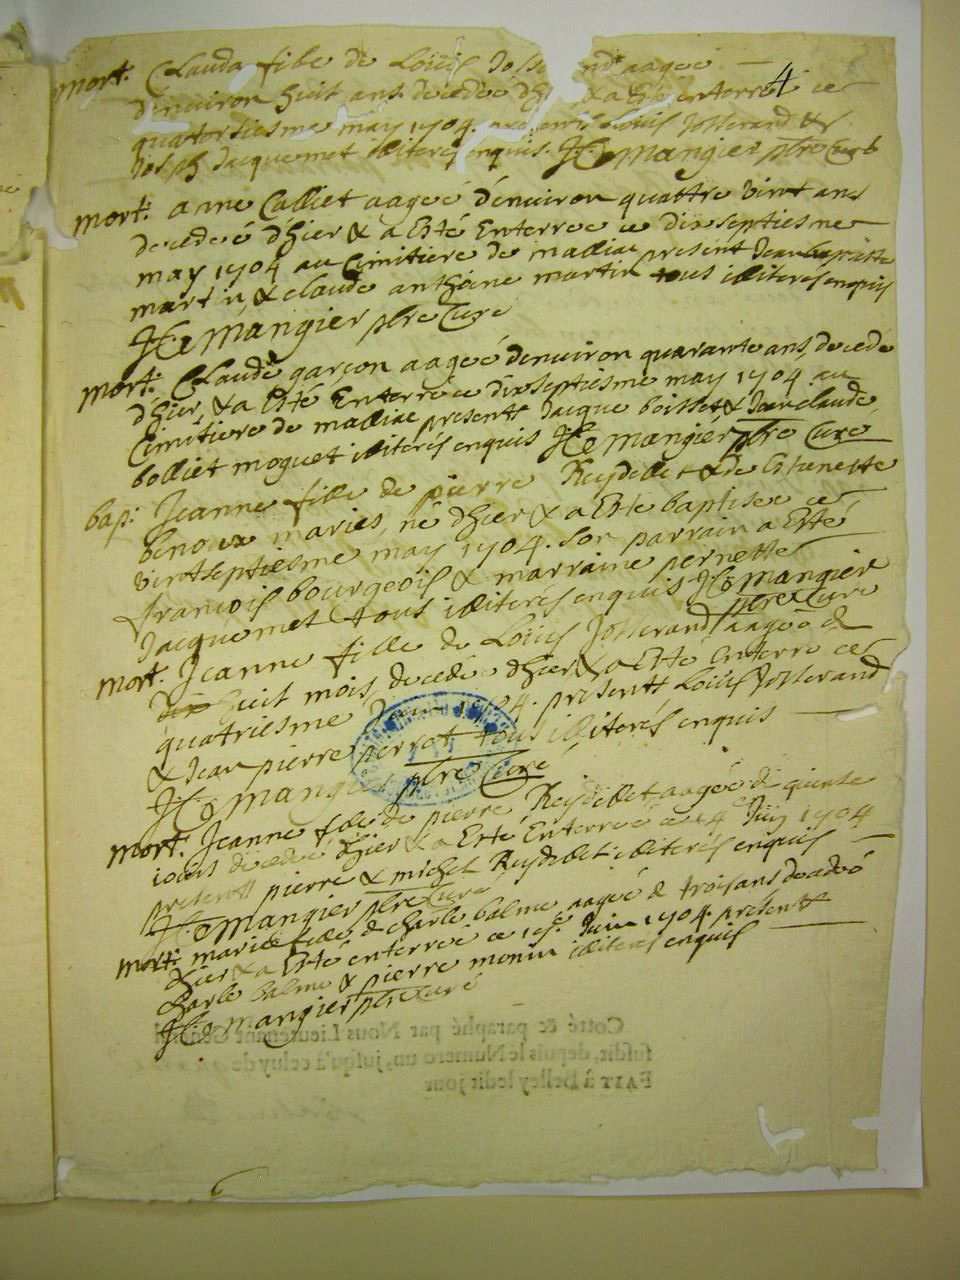 4
mort. Clauda fille de Loüis Joss nd aagee
d'enuiron huit ans decedeé d'hier & a esté enterreé ce
quatorsiesme may 1704. presents Loüis Josserand &
Joseph Jacquemet illiterés enquis. Mangier pbre Curé
mort. anne Calliet aageé d'enuiron quattre vint ans
decedeé d'hier & a Esté Enterreé ce dix septiesme
may 1704 au Cimitiere de malliat present Jean baptiste
martin, & claude anthoine martin tous illiterés enquis
Mangier pbre Curé
mort. Claude garçon aageé d'enuiron quarante ans, decedé
d'hier, & a Esté Enterré ce dix septiesme may 1704 au
Cimitiere de malliat presents Jacque boisset, & Jean claude
bolliet moguet illiterés enquis Mangier pbre Curé
bap. Jeanne fille de pierre Reydellet & de Estienette
benoux mariés, né d'hier & a Esté baptiseé ce
vintseptiesme may 1704. Son parrain a Esté
francois bourgeois & marraine pernette
Jacquemet tous illiterés enquis Mangier
pbre Curé
mort. Jeanne fille de Loüis Josserand aageé de
huit mois, decedeé d'hier & a Esté enterre ce
quatriesme 1704. presents Loüis Josserand
& Jean pierre perrot tous illiterés enquis
Mangier pbre Curé
mort. Jeanne fille de pierre Reydellet aageé de quinze
iours decedeé d'hier & a Esté Enterreé ce 14e Juin 1704
presents pierre & michel Reydellet illiterés enquis
Mangier pbre Curé
mort. marie fille de charle balme aageé de trois ans decedeé
d'hier & a Esté enterreé ce Juin 1704. presents
charle balme & pierre monin illiterés enquis
Mangier pbre Curé
Cotté & paraphé par Nous Lieutenant General
susdit, depuis le Numero un, jusqu'à celuy de
FAIT à Belley ledit jour